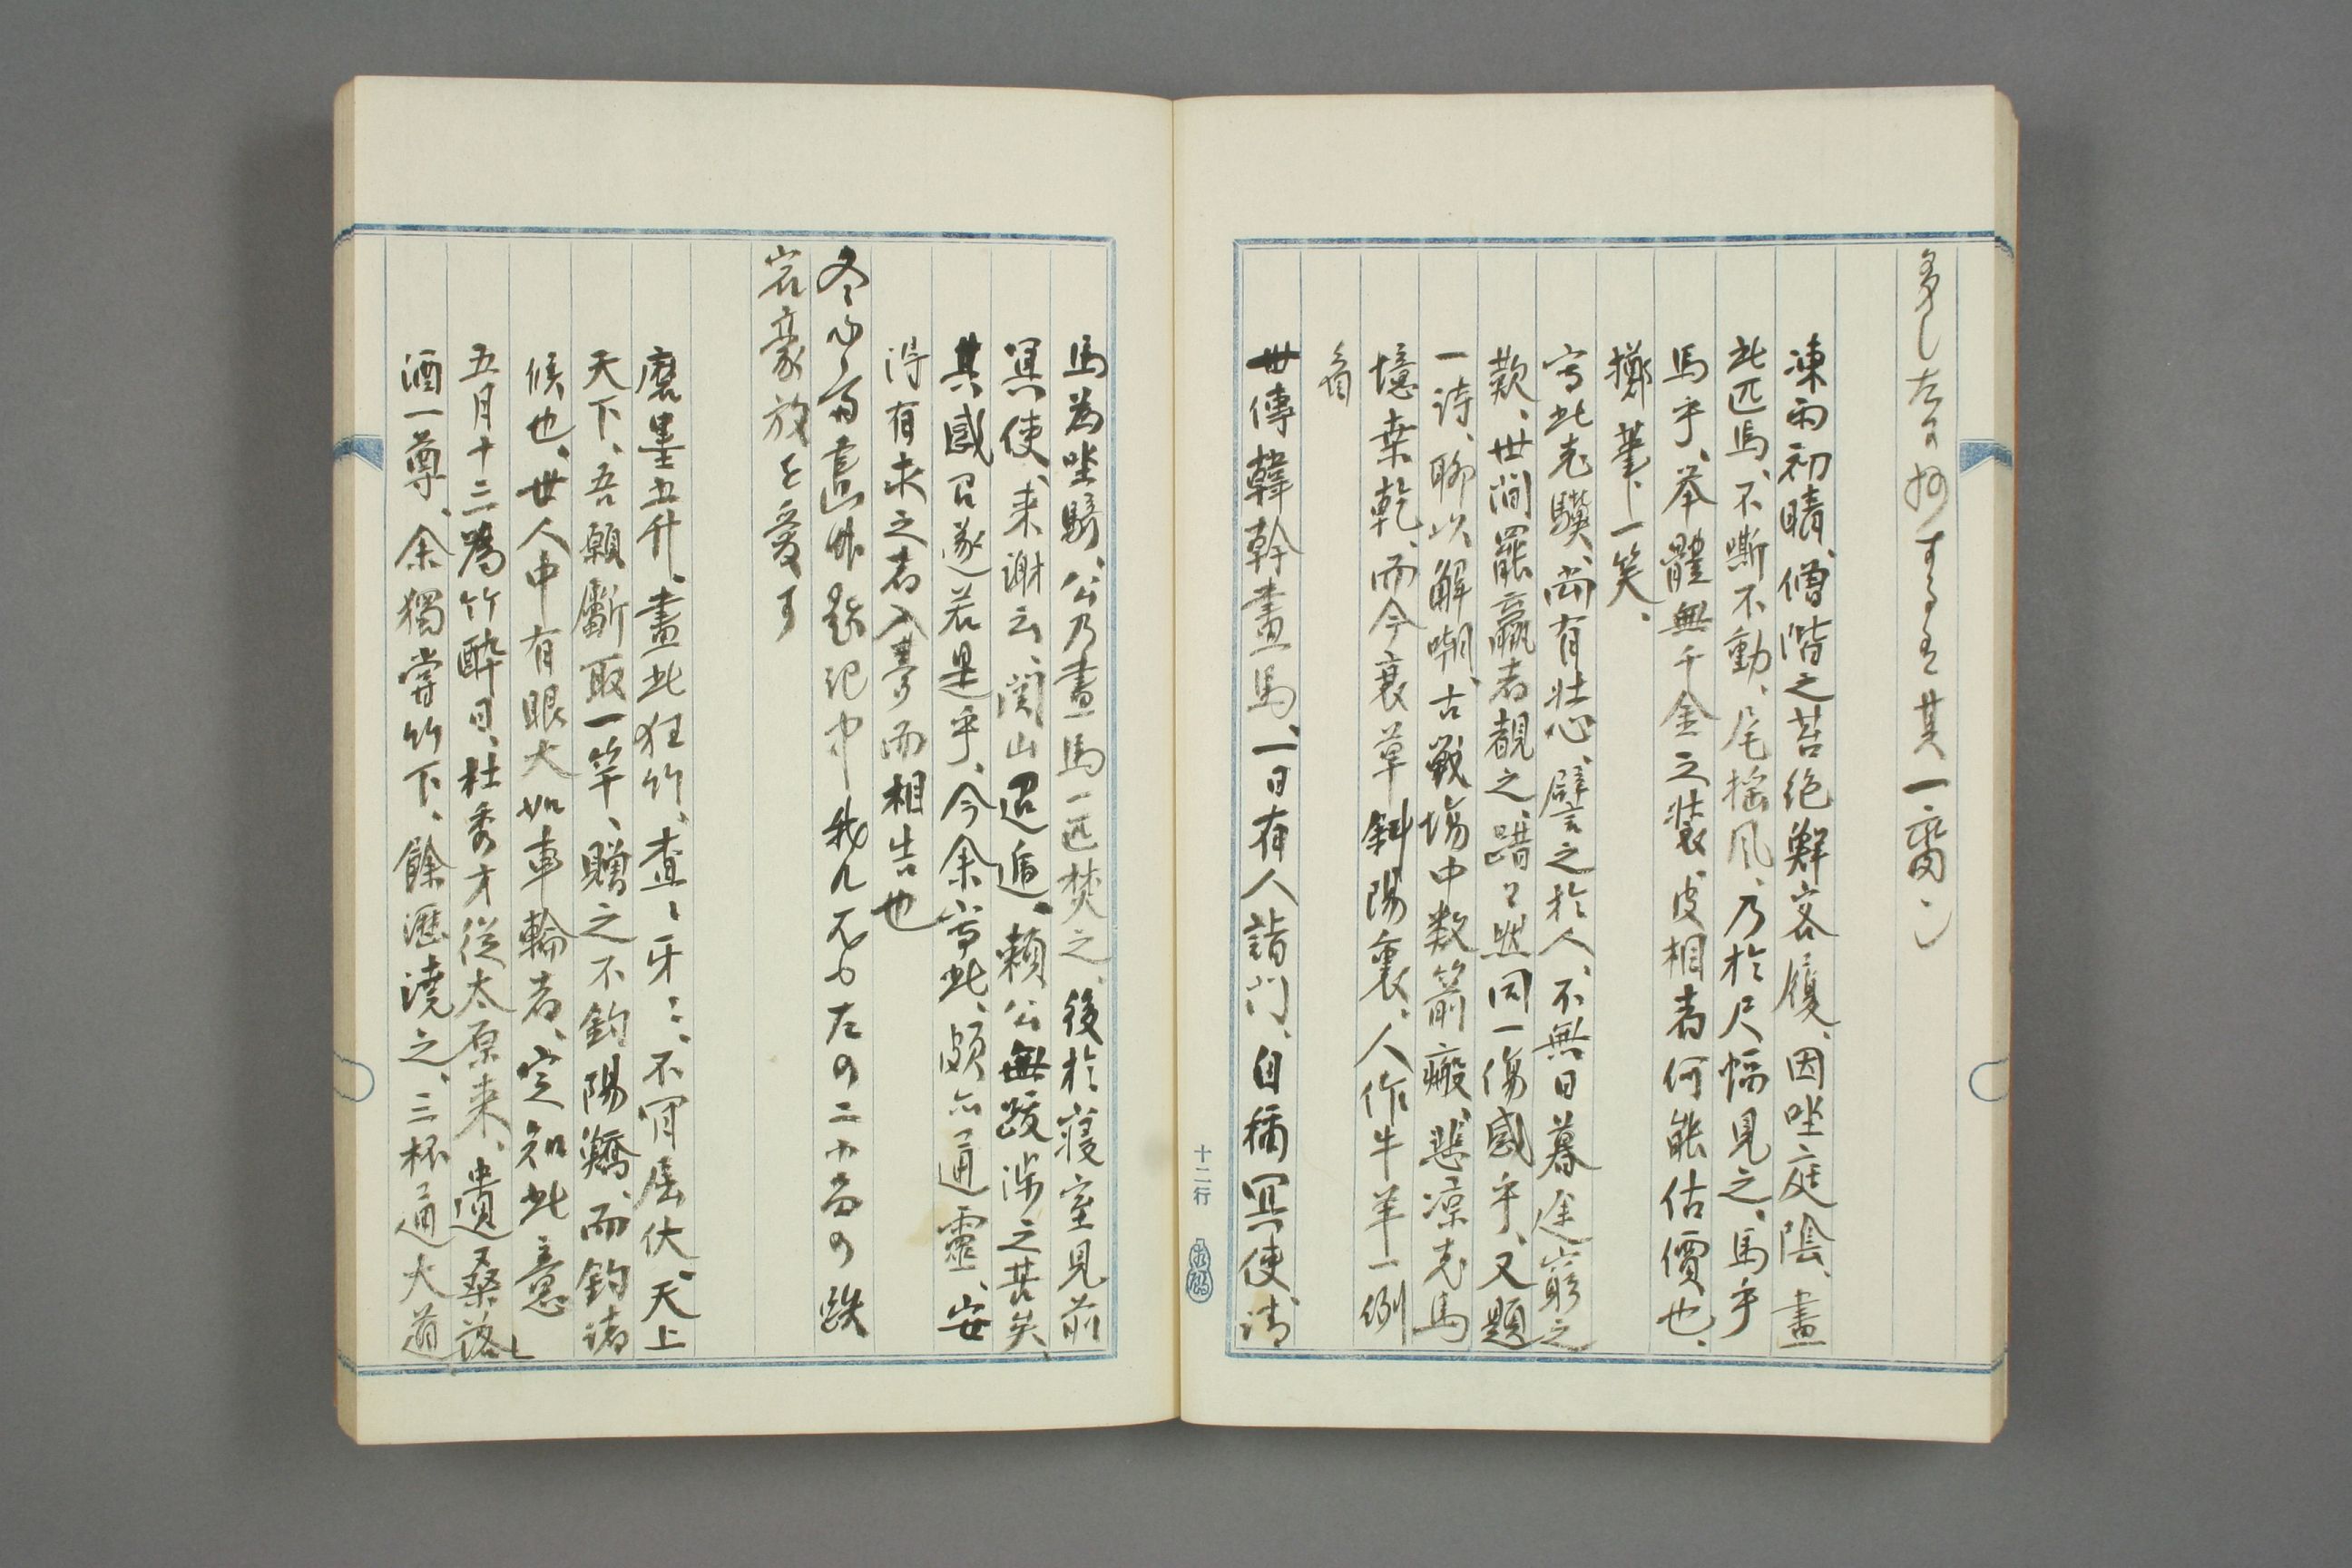 多し左に抄するは其一斎なり
凍雨初晴、僧階之苔絶鮮客履、因坐庭陰、畫
此匹馬、不嘶不動、尾搖風、乃於尺幅見之、馬乎
馬乎、举體無千金之裝、皮相者何能估價也、
擲筆一笑、
寫此老驥、尚有壮心、譬之於人、不無日暮途窮之
歎、世間罷羸者覩之、踖々然同一傷感乎、又題
一詩、聊以解嘲、古戰場中数箭瘢、悲凉老馬
憶桒乾、而今衰草斜陽裏、人作牛羊一例
看
世傳韓幹畫馬、一日有人詣門、自稱冥使、請
馬為坐騎、公乃畫馬一匹焚之、後於寝室見前
冥使、来謝云、関山迢遞、賴公無跋涉之苦矣、
其感召遂若是乎、今余寫此、頗亦通靈、安
得有求之者入夢而相告也
冬心斎畫竹題記中我几不ゆ左の二お斎の跌
宕豪放を愛す
磨墨五升、畫此狂竹、查〻牙〻、不肎屈伏、天上
天下、吾願斸取一竿、贈之不釣陽鱎、而釣諸
候也、世人中有眼大如車輪者、定知此意
五月十三為竹酔日、杜秀才従太原来、遺桑落
酒一尊、余獨嘗竹下、餘瀝澆之、三杯通大道
十二行